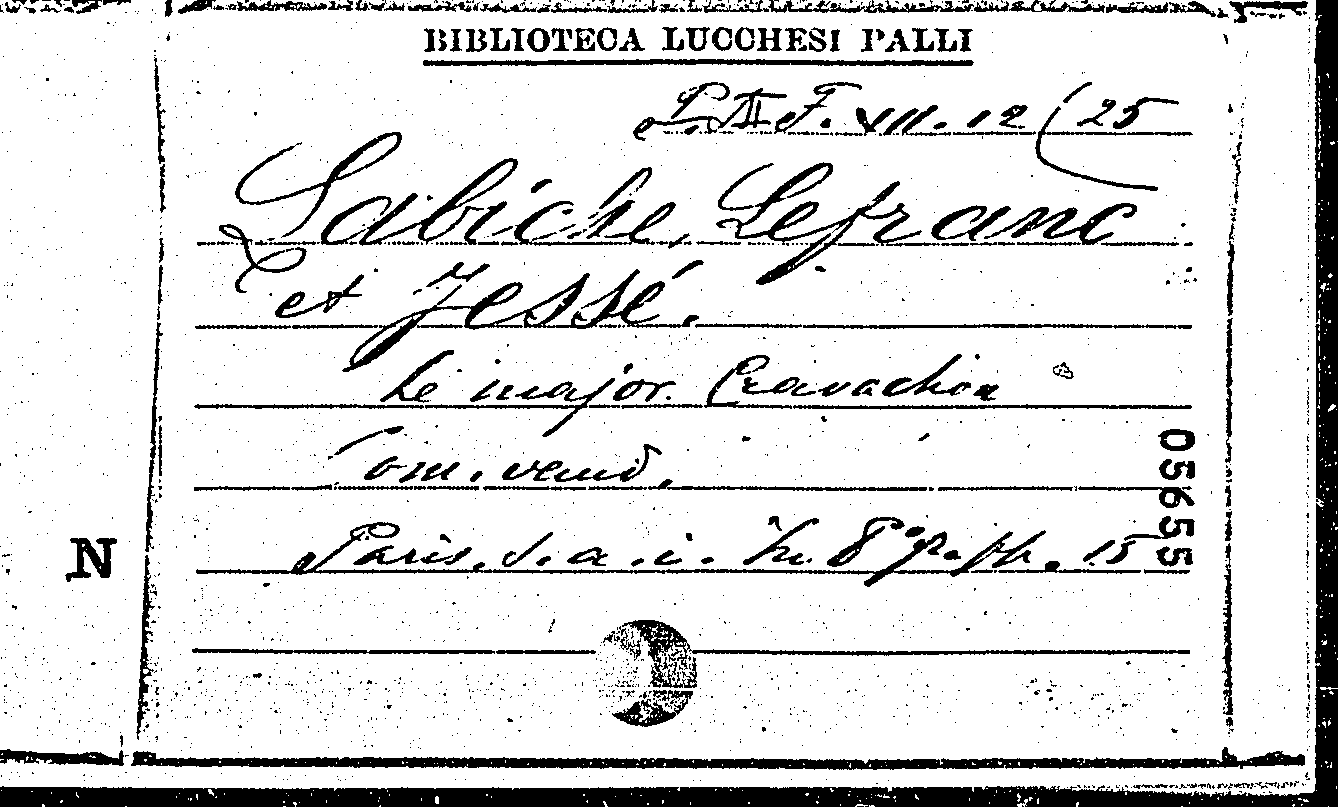 BIBLIOTECA LUCCHESI PALLI
L. III F. XII. 12 (25
Labiche, Lefranc
et Jessé.
Le major Cravachon
Com. vaud.
Paris. s. a. i. In 8° p. pp. 15
05655
N